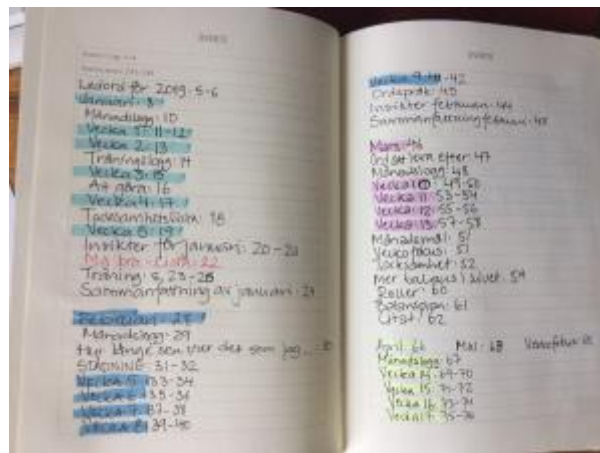 INDEX
Ledord för 2019 · 5-6
Januari · 8
Månadslogg · 10
Vecka 1 · 11-12
Vecka 2 · 13
Träningslogg · 14
Vecka 3 · 15
Att göra · 16
Vecka 4 · 17
Tacksamhetslista · 18
Vecka 5 · 19
Insikter för januari · 20-21
22
Träning
Sammanfattning av januari · 24
Februari · 28
Månadslogg · 29
Hur länge sen var det som jag...
STÄDNING 31-32
Vecka 5 · 33-34
Vecka 6 · 35-36
Vecka 7 · 37-38
Vecka 8 · 39-40
INDEX
Vecka 9 · 41-42
Ordspråk · 43
Insikter februari · 44
Sammanfattning februari · 45
Mars · 46
Ord att leva efter · 47
Månadslogg · 48
Vecka 10 · 49-50
Vecka 11 · 53-54
Vecka 12 · 55-56
Vecka 13 · 57-58
Månadsmål · 51
Veckofokus · 51
Tacksamhet · 52
Mer balans i livet · 59
Roller · 60
Balansplan · 61
Citat · 62
April · 66 Mål · 68 Veckofokus
Månadslogg · 67
Vecka 14 · 69-70
Vecka 15 · 71-72
Vecka 16 · 73-74
Vecka 17 · 75-76